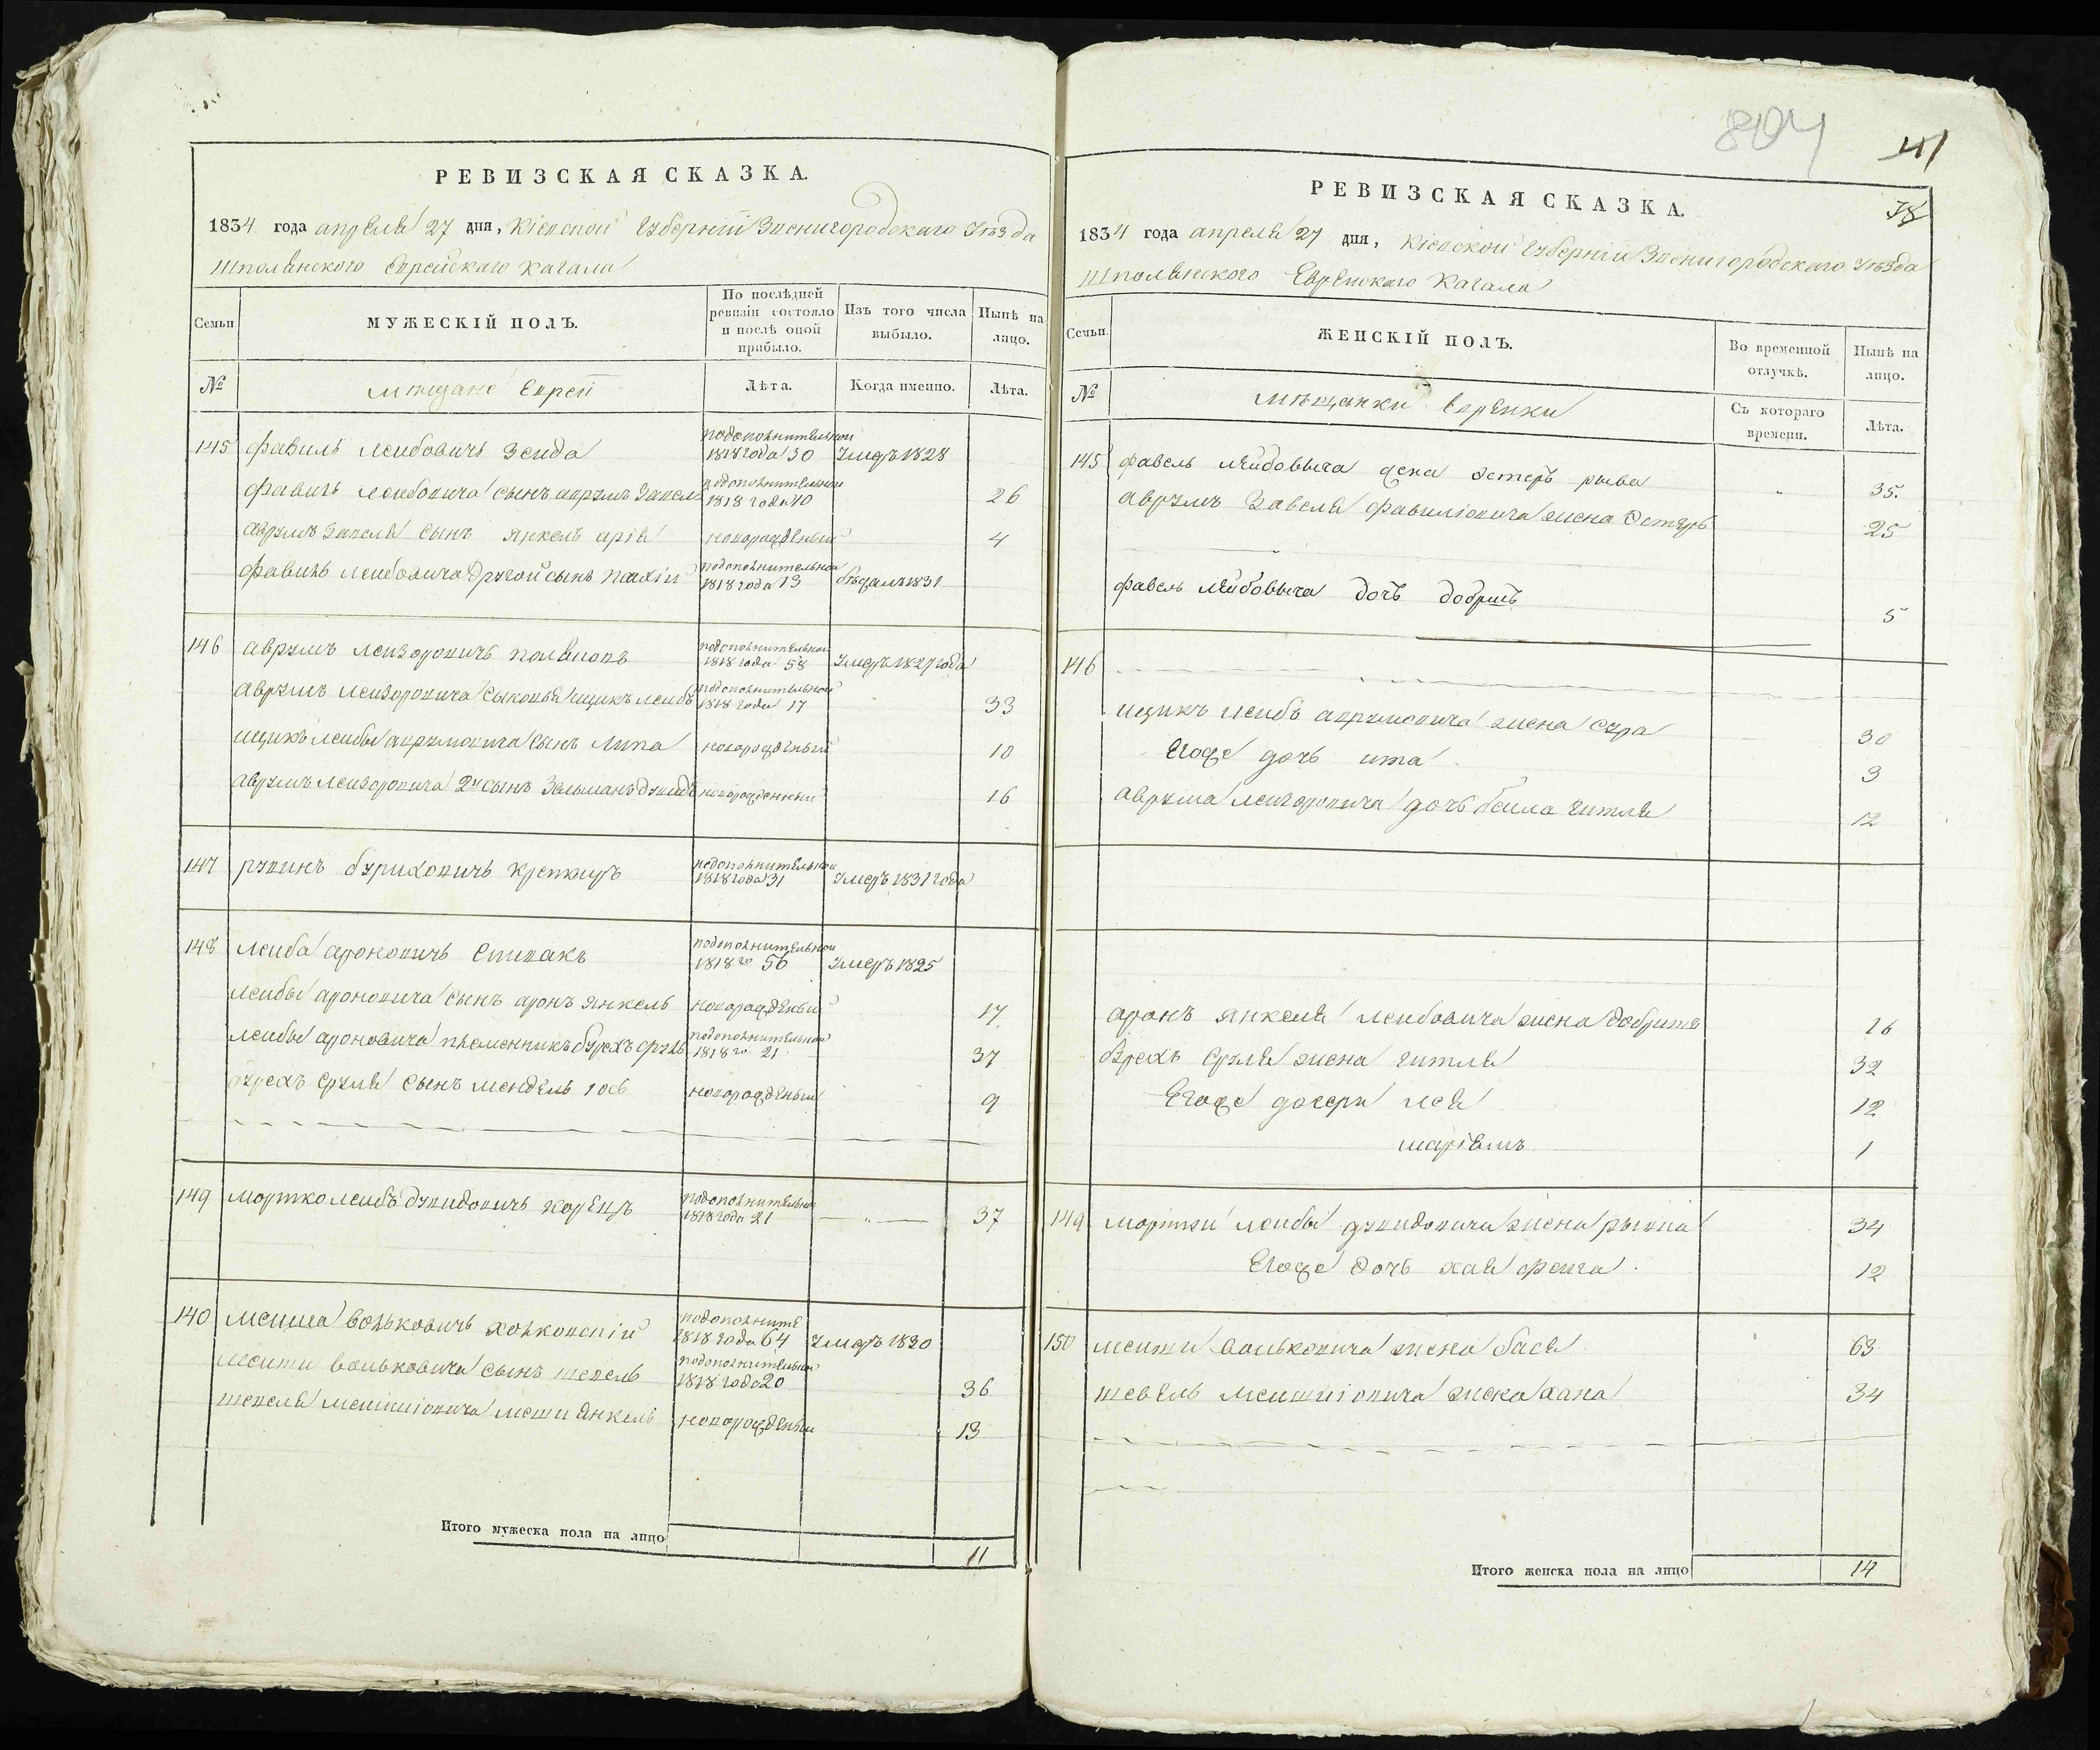 РЕВИЗСКАЯ СКАЗКА.
1834 года апреля 27 дня, Кіевской Губерніи Звенигородскаго Уѣзда
Шполянского Еврейскаго Кагала
Семьи
МУЖЕСКІЙ ПОЛЪ.
По послѣдней ревизіи состояло и послѣ оной прибыло.
Изъ того числа выбыло.
Нынѣ на лицо.
№
мѣщане Евреи
Лѣта.
Когда именно.
Лѣта.
145 фавиль Лейбовичъ Зейда подополнительной 1818 года 30 Умеръ 1828
фавиль Лейбовича сынъ аврумъ Завель подополнительной 1818 года 10 26
аврумъ Завеля сынъ янкель арія новорожденый 4
фавиль Лейбовича другой сынъ подополнительной 1818 года 13 бѣжалъ 1831
146 аврумъ Лейзоровичъ подополнительной 1818 года 58 Умеръ 1827 года
аврумъ Лейзоровича сыновья ицикъ лейбъ подополнительной 1818 года 17 33
ицикъ лейбы аврумовича сынъ Липа новорожденый 10
аврумъ Лейзоровича 2й сынъ Зельманъ дувидъ новорожденный 16
147 рувинъ бурихович подополнительной 1818 года 31 Умеръ 1831 года
148 Лейба ароновичъ Спивакъ подополнительной 1818 го 56 Умеръ 1825
Лейбы ароновича сынъ аронъ янкель новорожденый 17
Лейбы ароновича племенникъ бурехъ сруль подополнительной 1818 го 21 37
бурехъ сруля сынъ мендель іос новорожденый 9
149 мортко лейбъ дувидовичъ Корецъ подополнительной 1818 года 21 — „ — 37
140 мейша вольковичъ подополните 1818 года 64 Умеръ 1830
мейши вольковича сынъ шевель подополнительной 1818 года 20 36
шевеля мейшіовича янкель новорожденый 13
Итого мужеска пола на лицо 11
804
41
78
РЕВИЗСКАЯ СКАЗКА.
1834 года апреля 27 дня, Кіевской Губерніи Звенигородскаго Уѣзда
Шполянского Еврейскаго Кагала
Семьи.
ЖЕНСКІЙ ПОЛЪ.
Во временной отлучкѣ.
Нынѣ на лицо.
№
мѣщанки Еврейки
Съ котораго времени.
Лѣта.
145 фавель Лейбовыча жена эстеръ рыва „ 35.
аврумъ Завеля фавиліовича жена Эстеръ 25
фавель Лейбовыча дочь добришъ 5
146
ицикъ лейбъ аврумовича жена сура 30
Егоже дочь ита 3
аврума Лейзоровича дочь бейла гитля 12
аронъ янкеля лейбовича жена добришъ 16
бурехъ сруля жена гитля 32
Егоже дочери лея 12
маріямъ 1
149 мортки лейбы дувидовича жена рывка 34
Егоже дочь хая фейга 12
150 мейши вольковича жена бася 63
шевель мейшіовича жена хана 34
Итого женска пола на лицо 14